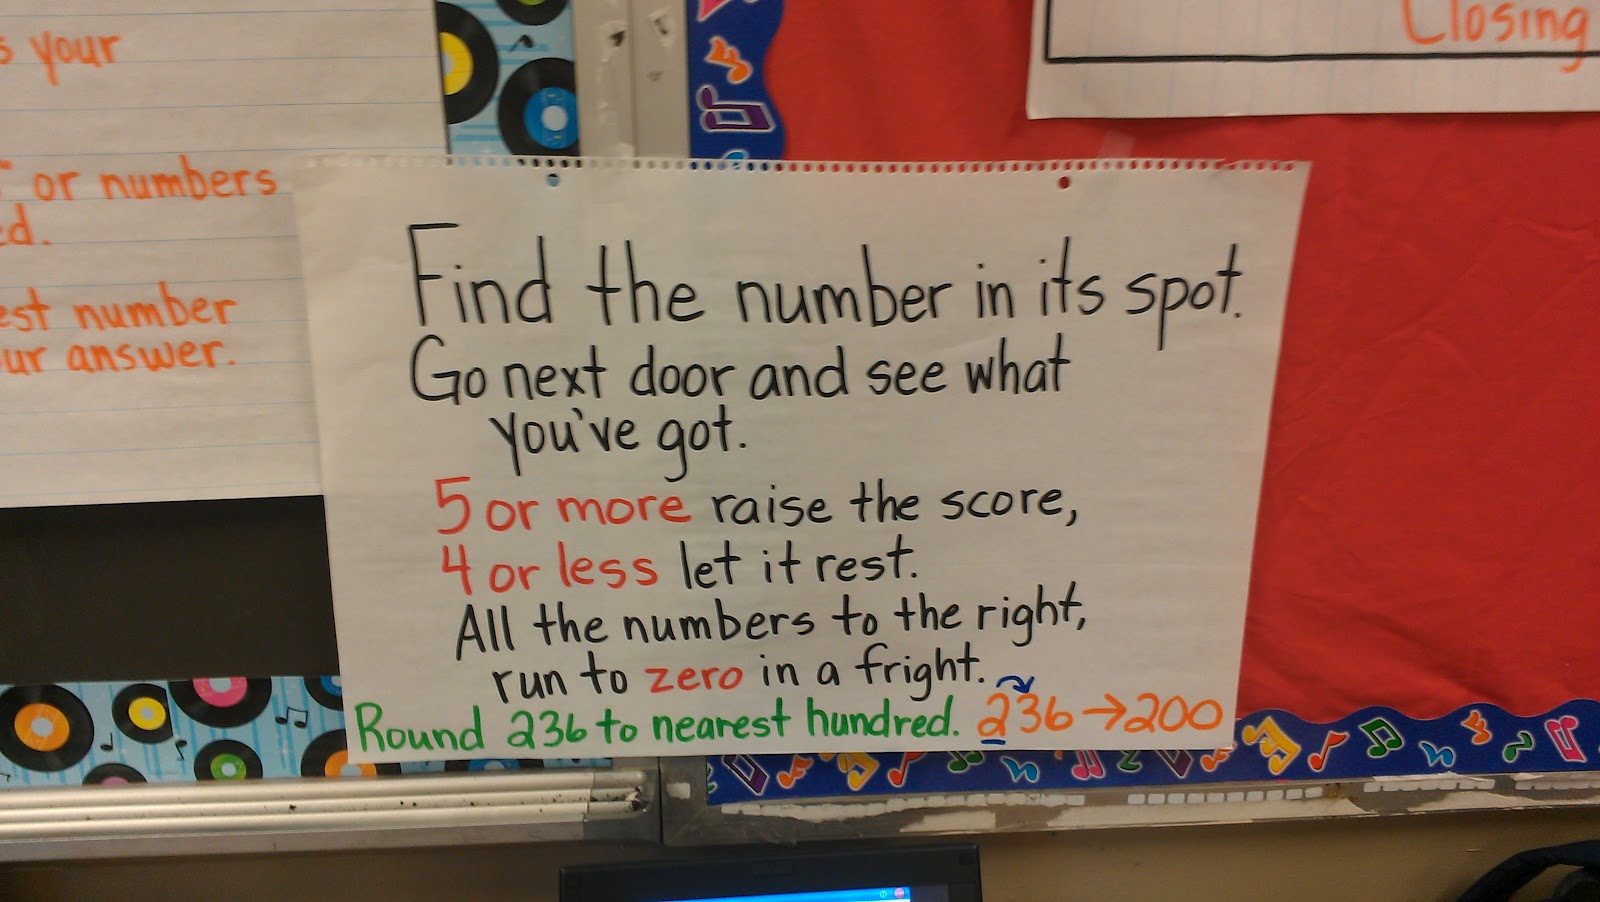 your
or numbers
ed.
est number
ur answer.
Closing
Find the number in its spot.
Go next door and see what
you've got.
5 or more raise the score,
4 or less let it rest.
All the numbers to the right,
run to zero in a fright.
Round 236 to nearest hundred. 236→200